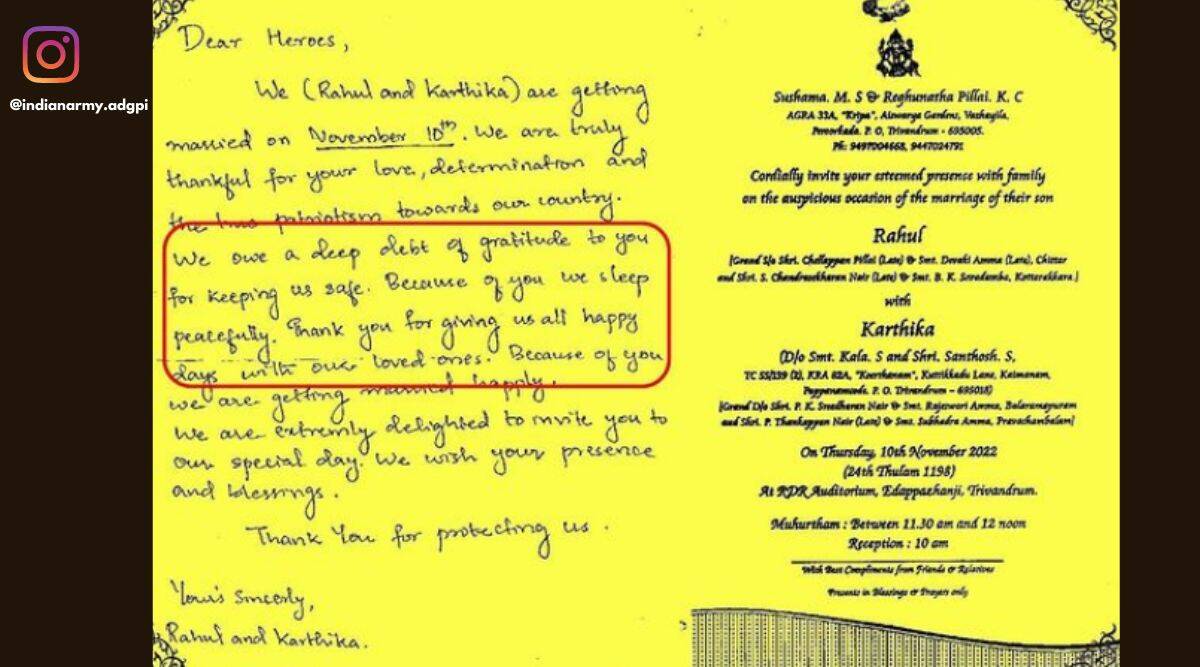 @indianarmy.adgpi
Dear Heroes,
We (Rahul and Karthika) are getting
married on November 10th. We are truly
thankful for your love, determination and
the true patriotism towards our country.
We owe a deep debt of gratitude to you
for keeping us safe. Because of you we sleep
peacefully. Thank you for giving us all happy
days with our loved ones. Because of you
we are getting married happily.
We are extremly delighted to invite you to
our special day. We wish your presence
and blessings.
Thank You for protecting us.
Your's Sincerly,
Rahul and Karthika.
Sushama. M. S & Reghunatha Pillai. K. C
AGRA 33A, "Kripa", Aiswarya Gardens, Vazhayila,
Peroorkada. P. O, Trivandrum - 695005.
Ph: 9497004668, 9447024791
Cordially invite your esteemed presence with family
on the auspicious occasion of the marriage of their son
Rahul
[Grand S/o Shri. Chellappan Pillai (Late) & Smt. Devaki Amma (Late), Chittar
and Shri. S. Chandrasekharan Nair (Late) & Smt. B. K. Sreedamba, Kottarakkara]
with
Karthika
(D/o Smt. Kala. S and Shri. Santhosh. S,
TC 55/139 (2), KRA 62A, "Keerthanam", Kuttikkadu Lane, Kaimanam,
Pappanamcode. P. O. Trivandrum - 695018)
[Grand D/o Shri. P. K. Sreedharan Nair & Smt. Rajeswari Amma, Balaramapuram
and Shri. P. Thankappan Nair (Late) & Smt. Subhadra Amma, Pravachambalam]
On Thursday, 10th November 2022
(24th Thulam 1198)
At RDR Auditorium, Edappazhanji, Trivandrum.
Muhurtham : Between 11.30 am and 12 noon
Reception : 10 am
With Best Compliments from Friends & Relatives
Presents in Blessings & Prayers only